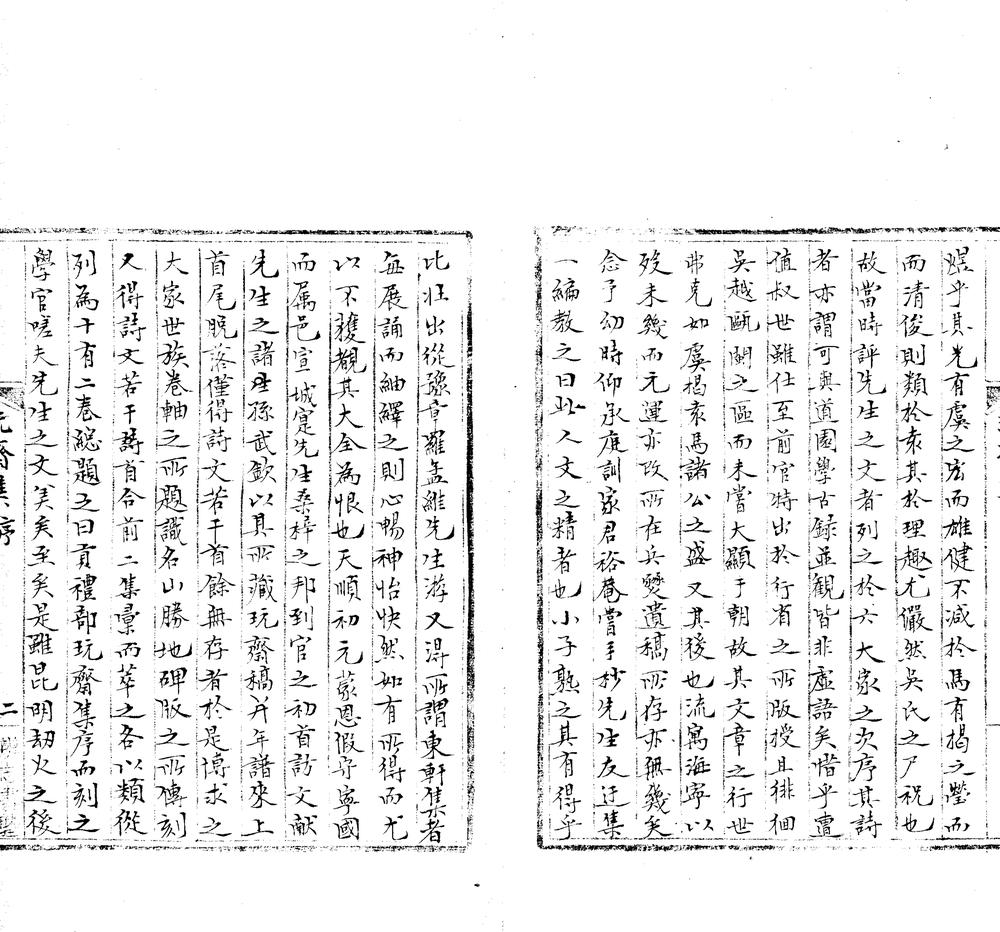 煜乎其光有虞之宏而雄健不减於馬有揭之瑩而
而清俊則類於袁其於理趣尤儼然吳氏之尸祝也
故當時評先生之文者列之於六大家之次序其詩
者亦謂可與道園學古録並觀皆非虛語矣惜乎遭
值叔世雖仕至前官特出於行省之所版授且徘徊
吳越甌閩之區而未嘗大顯于朝故其文章之行世
弗克如虞揭袁馬諸公之盛又其後也流寓海寧以
歿未幾而元運亦改所在兵燹遺稿所存亦無幾矣
念予幼時仰承庭訓家君裕菴嘗手抄先生友迂集
一編教之曰此人文之精者也小子熟之其有得乎
比壯出從豫章羅孟維先生游又得所謂東軒集者
每展誦而紬繹之則心暢神怡快然如有所得而尤
以不獲觀其大全為恨也天順初元蒙恩假守寧國
而属邑宣城寔先生桑梓之邦到官之初首訪文献
先生之諸孫武欽以其所藏玩齋稿并年譜來上
首尾脱落僅得詩文若干首餘無存者於是博求之
大家世族卷軸之所題識名山勝地碑版之所傳刻
又得詩文若干首合前二集彙而萃之各以類從
列為十有二卷總題之曰貢禮部玩齋集序而刻之
學官嗟夫先生之文美矣至矣是雖昆明劫火之後
玩齋集序
二